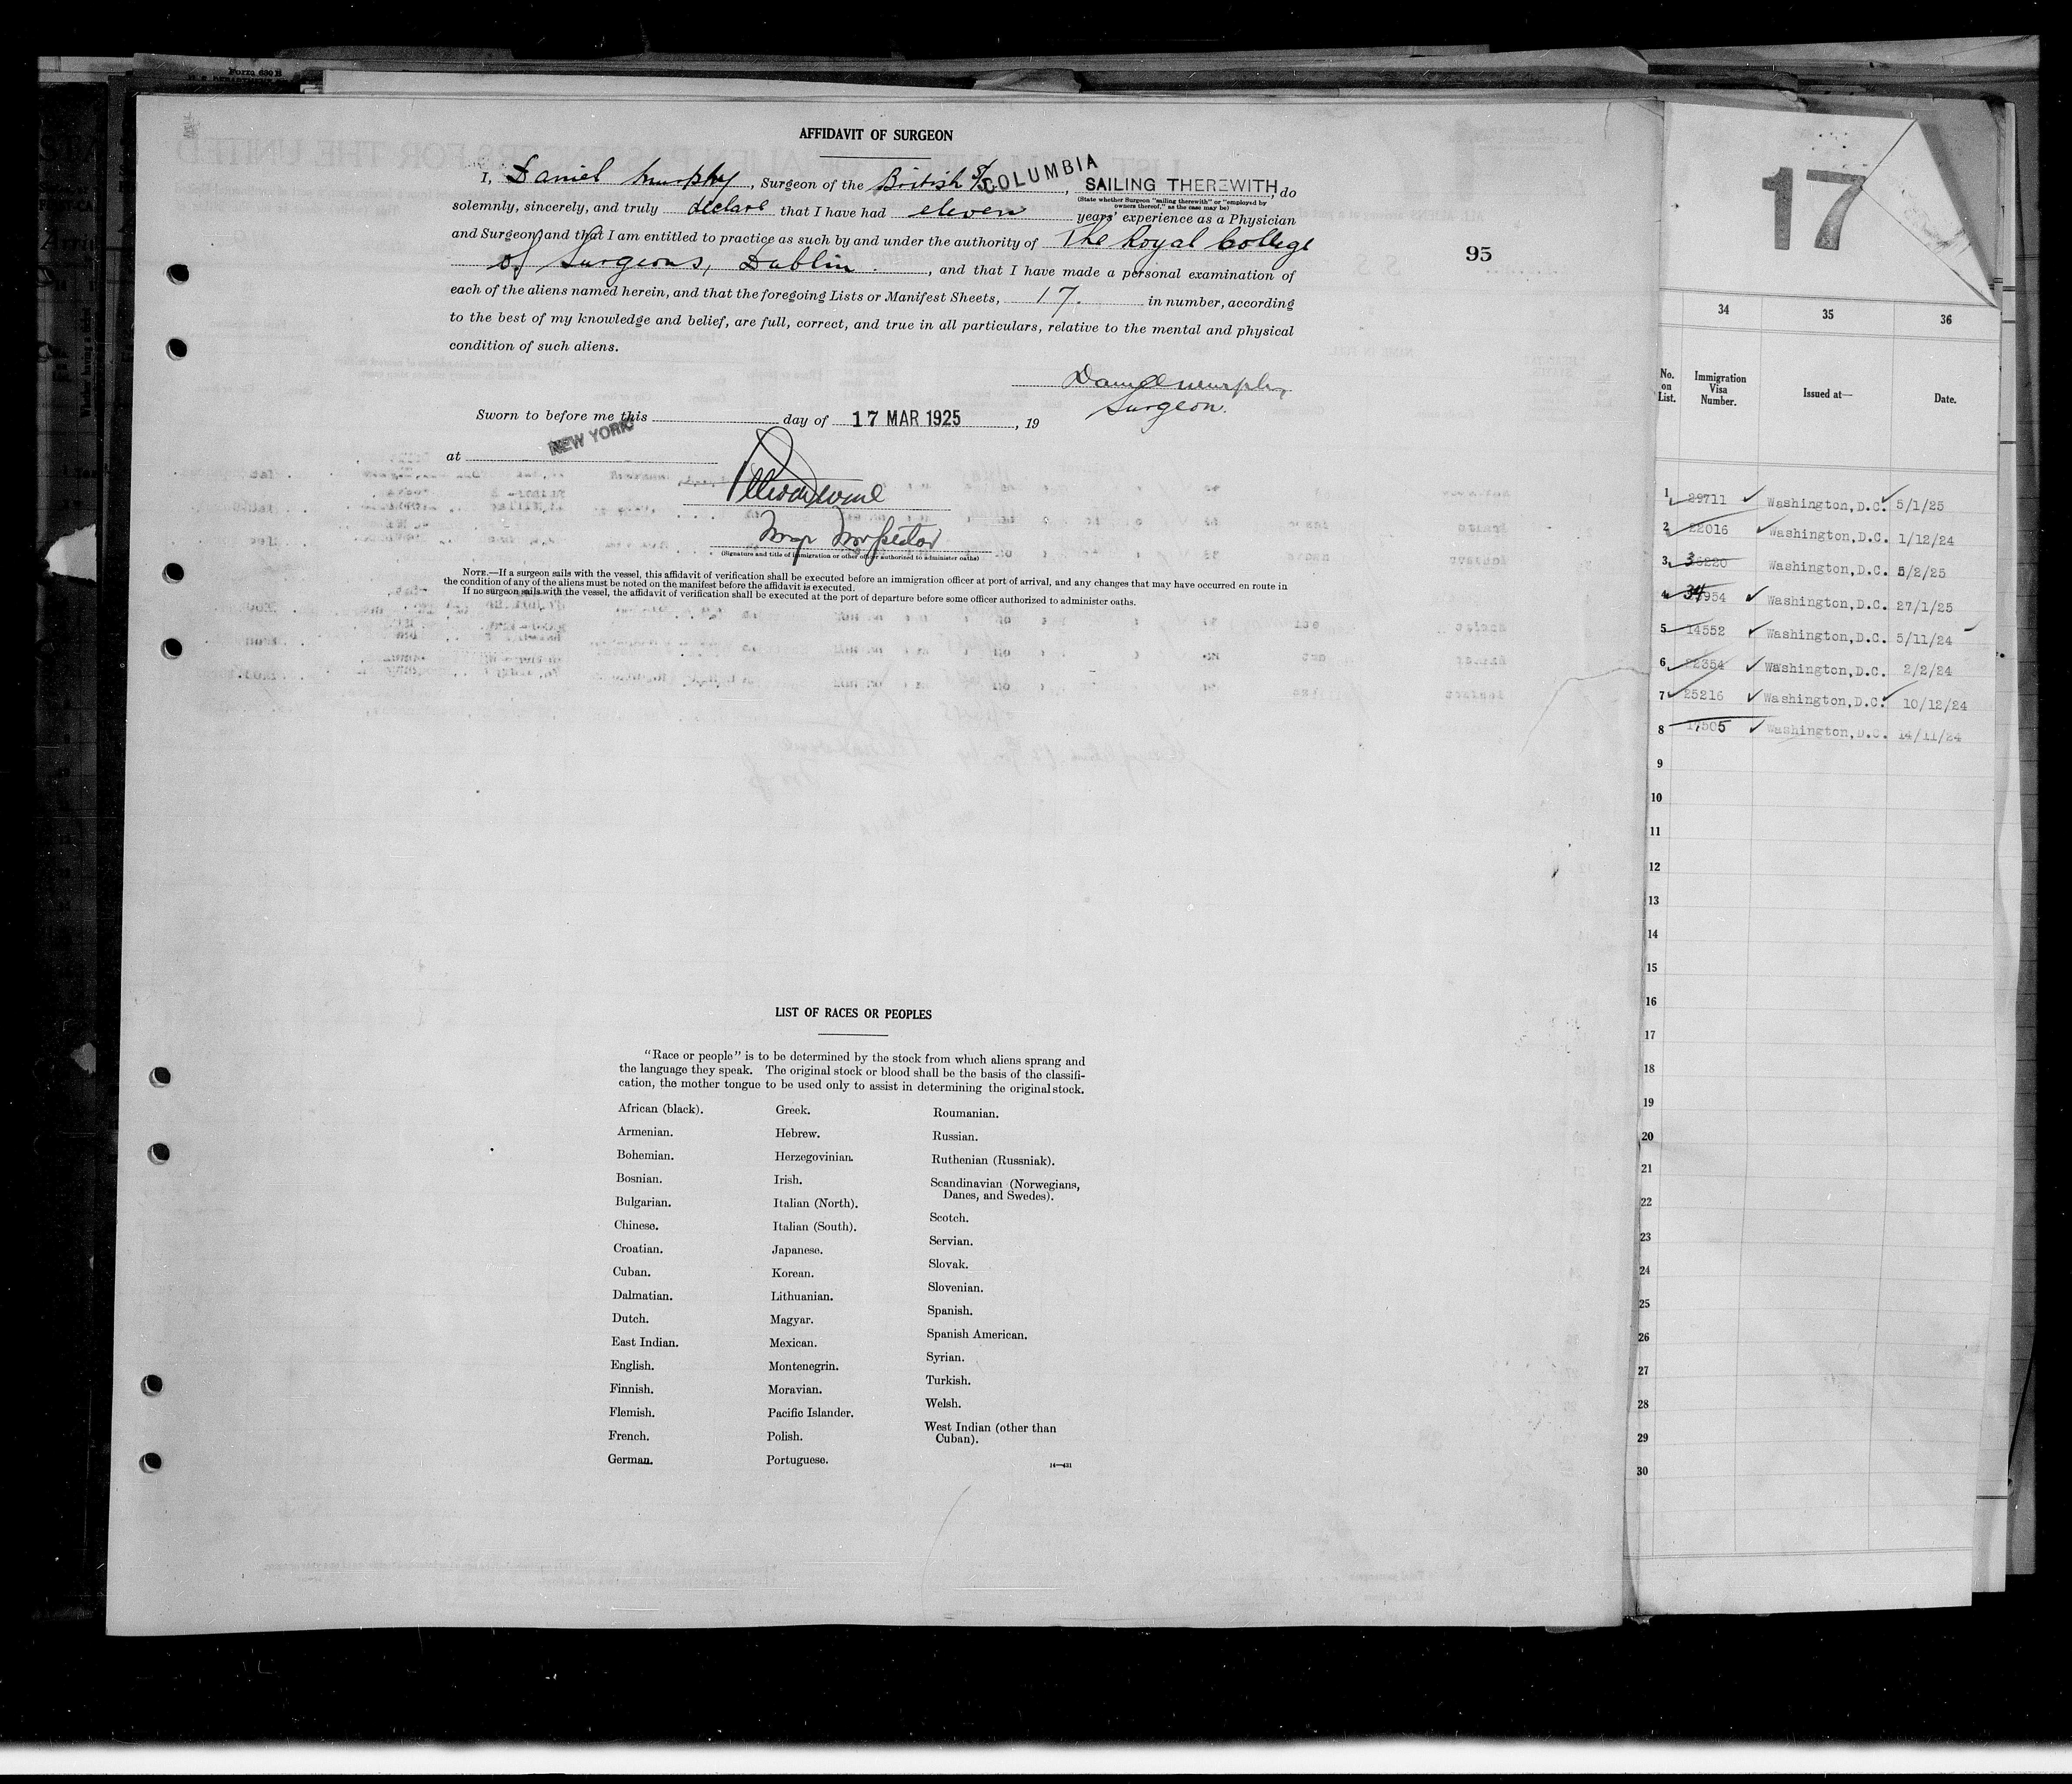 Form 630 B
AFFIDAVIT OF SURGEON
I, Daniel Murphy, Surgeon of the British S/S COLUMBIA, SAILING THEREWITH, do
(State whether Surgeon "sailing therewith" or "employed by
owners thereof," as the case may be)
solemnly, sincerely, and truly declare that I have had eleven years' experience as a Physician
and Surgeon, and that I am entitled to practice as such by and under the authority of The Royal College
of Surgeons, Dublin, and that I have made a personal examination of
each of the aliens named herein, and that the foregoing Lists or Manifest Sheets, 17. in number, according
to the best of my knowledge and belief, are full, correct, and true in all particulars, relative to the mental and physical
condition of such aliens.
Daniel Murphy
Surgeon.
Sworn to before me this day of 17 MAR 1925, 19
at NEW YORK
Inspector
(Signature and title of immigration or other officer authorized to administer oaths)
NOTE.—If a surgeon sails with the vessel, this affidavit of verification shall be executed before an immigration officer at port of arrival, and any changes that may have occurred en route in
the condition of any of the aliens must be noted on the manifest before the affidavit is executed.
If no surgeon sails with the vessel, the affidavit of verification shall be executed at the port of departure before some officer authorized to administer oaths.
95
LIST OF RACES OR PEOPLES
"Race or people" is to be determined by the stock from which aliens sprang and
the language they speak. The original stock or blood shall be the basis of the classifi-
cation, the mother tongue to be used only to assist in determining the original stock.
African (black).
Armenian.
Bohemian.
Bosnian.
Bulgarian.
Chinese.
Croatian.
Cuban.
Dalmatian.
Dutch.
East Indian.
English.
Finnish.
Flemish.
French.
German.
Greek.
Hebrew.
Herzegovinian.
Irish.
Italian (North).
Italian (South).
Japanese.
Korean.
Lithuanian.
Magyar.
Mexican.
Montenegrin.
Moravian.
Pacific Islander.
Polish.
Portuguese.
Roumanian.
Russian.
Ruthenian (Russniak).
Scandinavian (Norwegians,
Danes, and Swedes).
Scotch.
Servian.
Slovak.
Slovenian.
Spanish.
Spanish American.
Syrian.
Turkish.
Welsh.
West Indian (other than
Cuban).
14—431
17
34 35 36
No. on List. Immigration Visa Number. Issued at— Date.
1 29711 Washington, D.C. 5/1/25
2 22016 Washington, D.C. 1/12/24
3 36220 Washington, D.C. 5/2/25
4 34954 Washington, D.C. 27/1/25
5 14552 Washington, D.C. 5/11/24
6 22354 Washington, D.C. 2/2/24
7 25216 Washington, D.C. 10/12/24
8 17505 Washington, D.C. 14/11/24
9
10
11
12
13
14
15
16
17
18
19
20
21
22
23
24
25
26
27
28
29
30